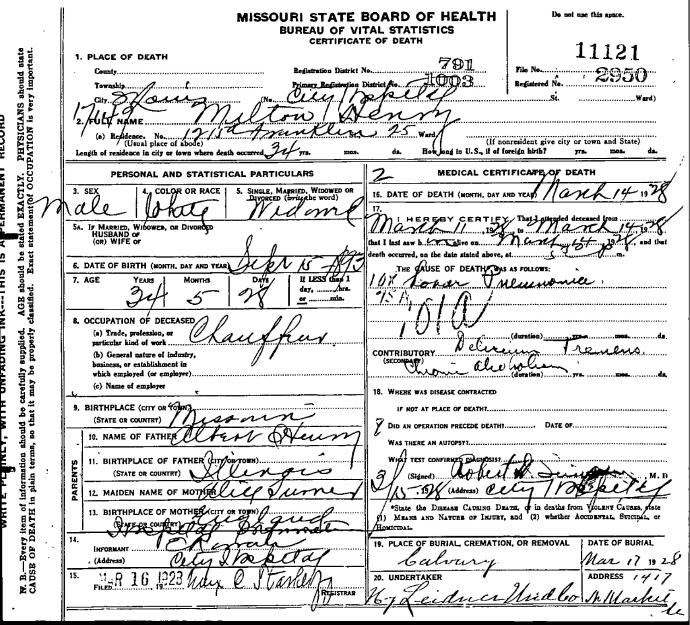 MISSOURI STATE BOARD OF HEALTH
BUREAU OF VITAL STATISTICS
CERTIFICATE OF DEATH
Do not use this space.
11121
1. PLACE OF DEATH
County
Registration District No. 791
File No.
Township
Primary Registration District No. 1003
Registered No. 2950
City St Louis (No. City Hospital St. Ward)
2. FULL NAME Milton Henry
(a) Residence. No. 1215a Franklin 25 Ward
(Usual place of abode) (If nonresident give city or town and State)
Length of residence in city or town where death occurred 34 yrs. mos. ds. How long in U.S., if of foreign birth? yrs. mos. ds.
PERSONAL AND STATISTICAL PARTICULARS
3. SEX 4. COLOR OR RACE 5. SINGLE, MARRIED, WIDOWED OR DIVORCED (write the word)
Male White Widowed
5A. IF MARRIED, WIDOWED, OR DIVORCED
HUSBAND OF
(OR) WIFE OF
6. DATE OF BIRTH (MONTH, DAY AND YEAR) Sept 15 1893
7. AGE YEARS MONTHS DAYS If LESS than 1 day, hrs. or min.
34 5 28
8. OCCUPATION OF DECEASED
(a) Trade, profession, or particular kind of work Chauffeur
(b) General nature of industry, business, or establishment in which employed (or employer)
(c) Name of employer
9. BIRTHPLACE (CITY OR TOWN)
(STATE OR COUNTRY) Missouri
PARENTS
10. NAME OF FATHER Albert Henry
11. BIRTHPLACE OF FATHER (CITY OR TOWN)
(STATE OR COUNTRY) Illinois
12. MAIDEN NAME OF MOTHER Turner
13. BIRTHPLACE OF MOTHER (CITY OR TOWN)
(STATE OR COUNTRY)
14.
INFORMANT
(Address) City Hospital
15.
FILED MAR 16 1928 Max C Starkloff
REGISTRAR
2 MEDICAL CERTIFICATE OF DEATH
16. DATE OF DEATH (MONTH, DAY AND YEAR) March 14 1928
17.
I HEREBY CERTIFY, That I attended deceased from
March 11, 1928, to March 14, 1928,
that I last saw him alive on March 14, 1928, and that
death occurred, on the date stated above, at m.
THE CAUSE OF DEATH* WAS AS FOLLOWS:
108 Lobar Pneumonia
101A
(duration) yrs. mos. ds.
CONTRIBUTORY Delirium Tremens
(SECONDARY) Chronic Alcoholism
(duration) yrs. mos. ds.
18. WHERE WAS DISEASE CONTRACTED
IF NOT AT PLACE OF DEATH?
8 DID AN OPERATION PRECEDE DEATH? DATE OF
WAS THERE AN AUTOPSY?
WHAT TEST CONFIRMED DIAGNOSIS?
(Signed) Robert M. D.
3/15, 1928 (Address) City Hospital
*State the DISEASE CAUSING DEATH, or in deaths from VIOLENT CAUSES, state
(1) MEANS AND NATURE OF INJURY, and (2) whether ACCIDENTAL, SUICIDAL, or
HOMICIDAL.
19. PLACE OF BURIAL, CREMATION, OR REMOVAL DATE OF BURIAL
Calvary Mar 17 1928
20. UNDERTAKER ADDRESS 1417
Leidner Und Co N. Market
N. B.—Every item of information should be carefully supplied. AGE should be stated EXACTLY. PHYSICIANS should state
CAUSE OF DEATH in plain terms, so that it may be properly classified. Exact statement of OCCUPATION is very important.
WRITE PLAINLY, WITH UNFADING INK---THIS IS A PERMANENT RECORD